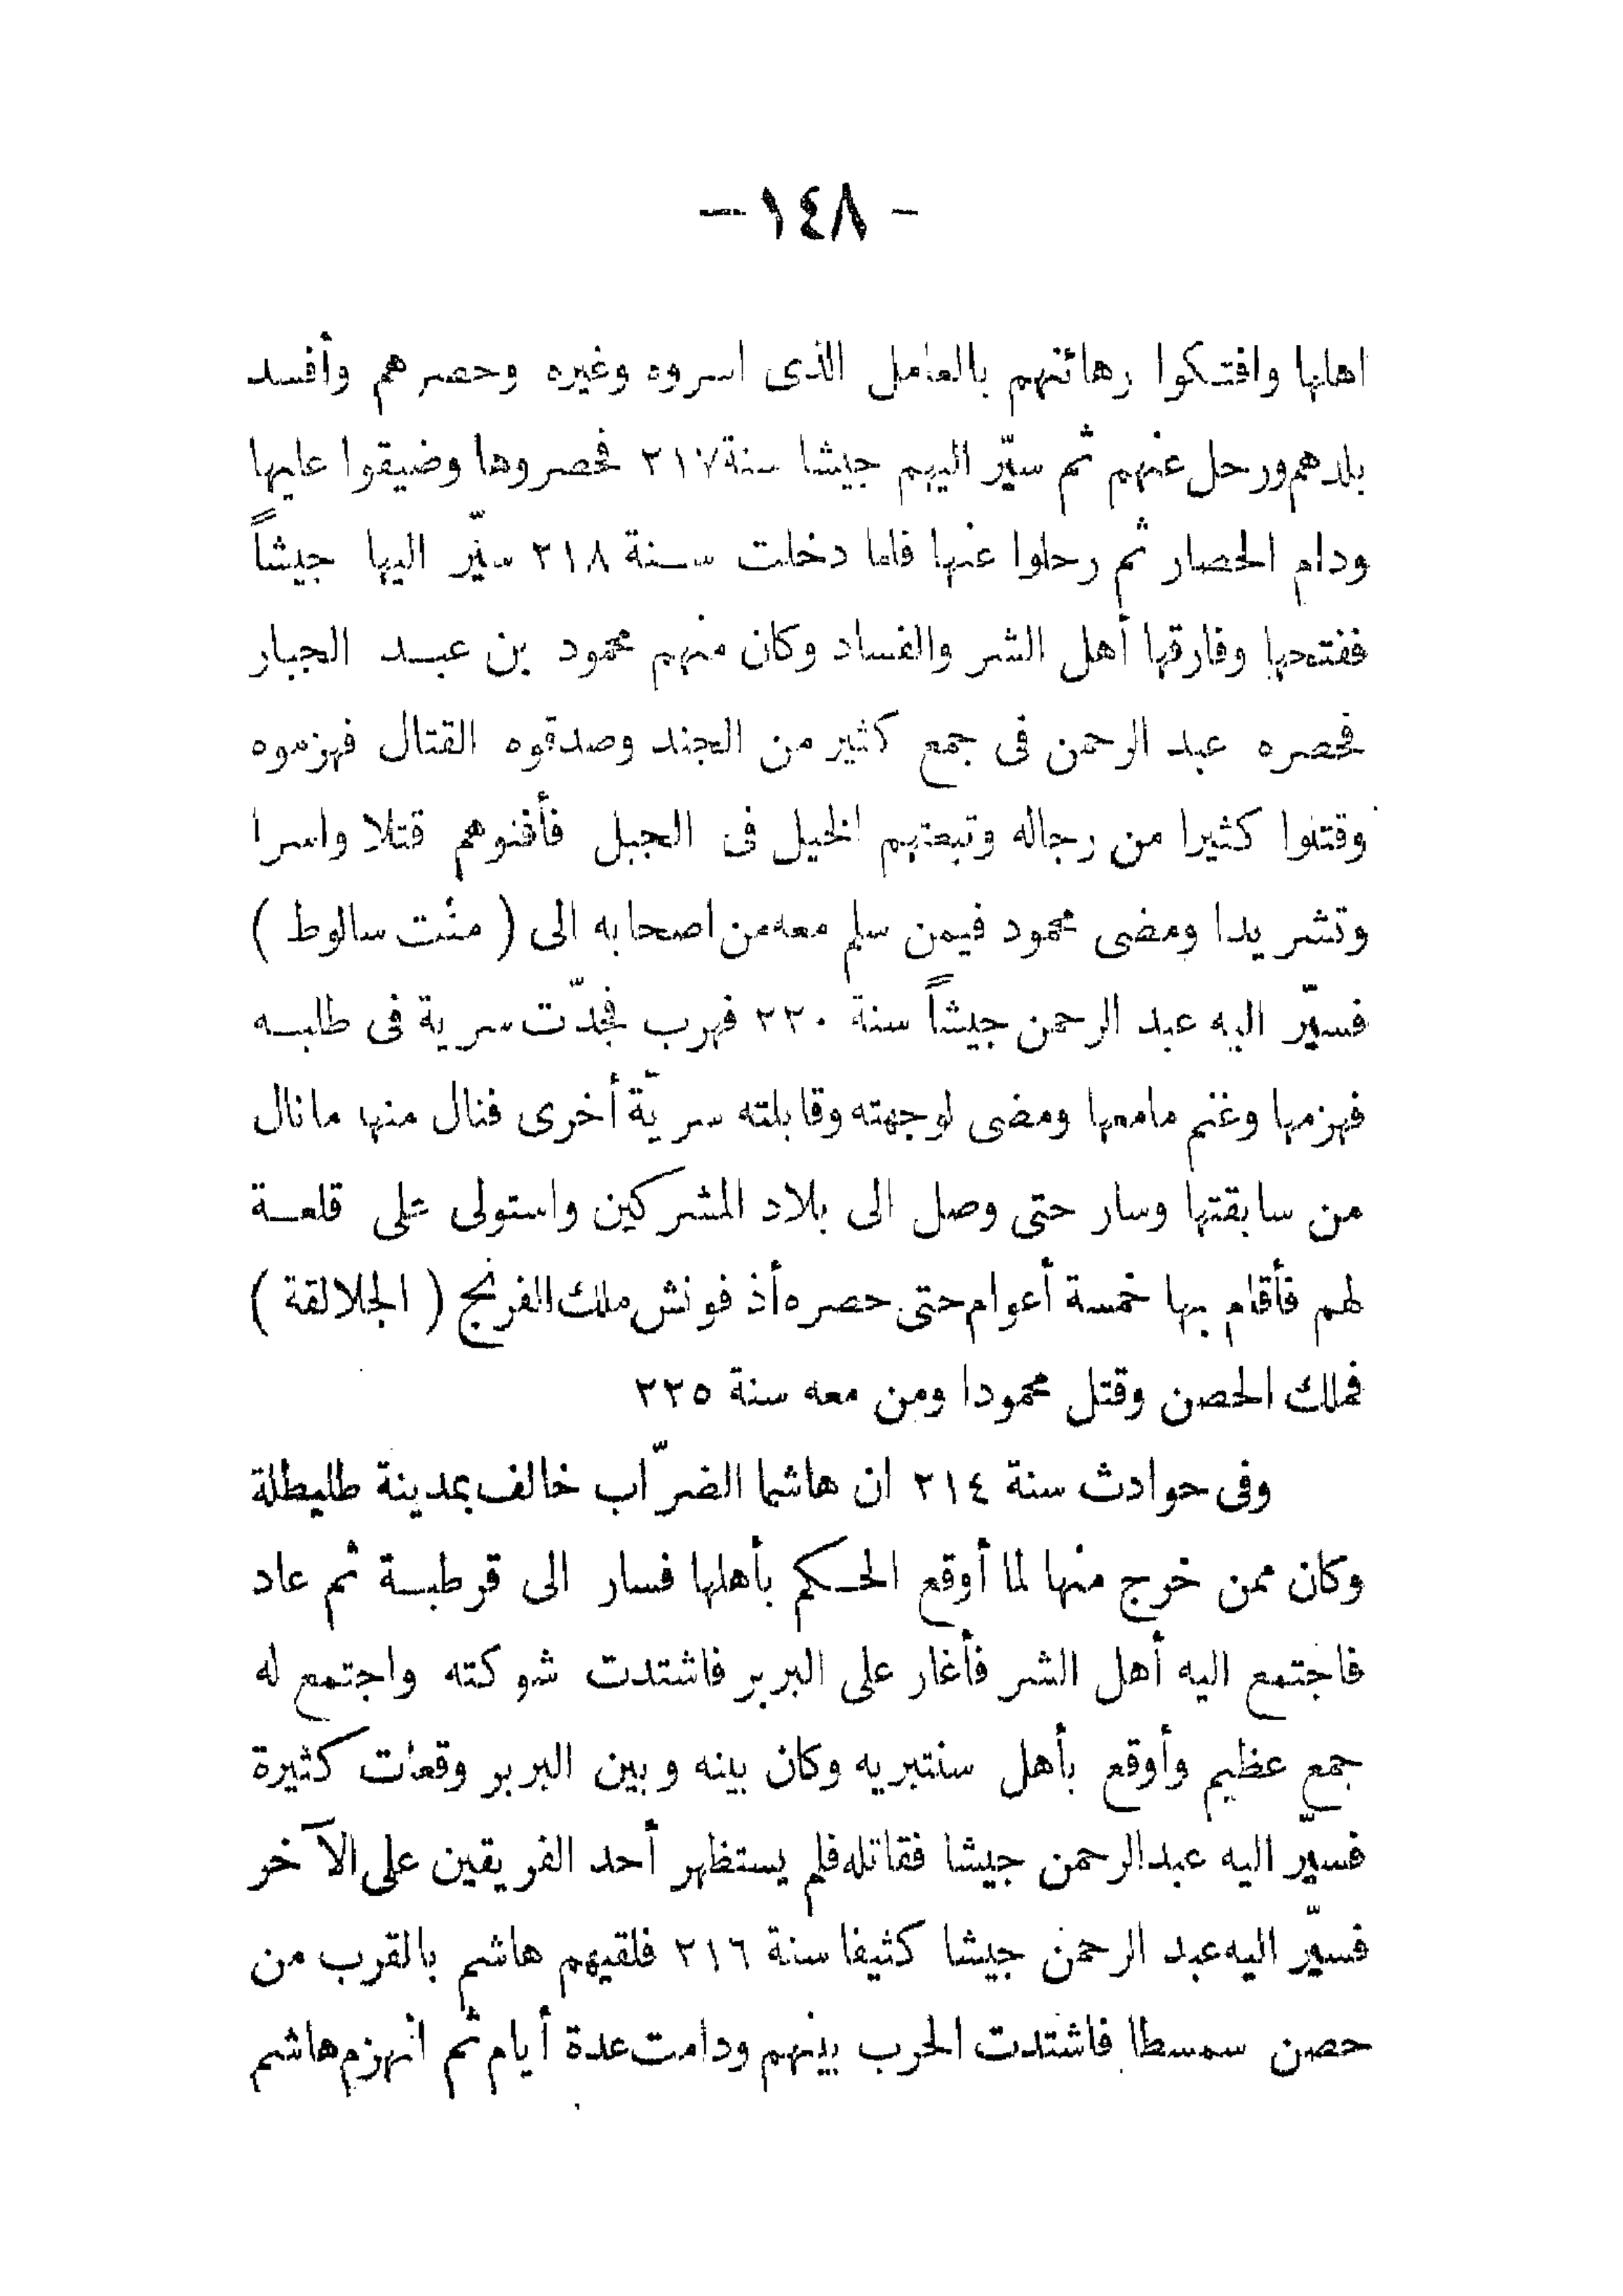 - ١٤٨ -
اهلها وافتكوا رهائنهم بالعامل الذى اسروه وغيره وحصرهم وأفسد
بلدهم ورحل عنهم ثم سيّر اليهم جيشا سنة ٢١٧ فحصروها وضيقوا عليها
ودام الحصار ثم رحلوا عنها فلما دخلت سنة ٢١٨ سيّر اليها جيشاً
ففتحها وفارقها أهل الشر والفساد وكان منهم محمود بن عبد الجبار
فحصره عبد الرحمن فى جمع كثير من الجند وصدقوه القتال فهزموه
وقتلوا كثيرا من رجاله وتبعتهم الخيل فى الجبل فأفنوهم قتلا واسرا
وتشريدا ومضى محمود فيمن سلم معه من اصحابه الى ( منت سالوط )
فسيّر اليه عبد الرحمن جيشاً سنة ٢٢٠ فهرب فجدّت سرية فى طلبه
فهزمها وغنم مامعها ومضى لوجهته وقابلته سريّة أخرى فنال منها مانال
من سابقتها وسار حتى وصل الى بلاد المشركين واستولى على قلعة
لهم فأقام بها خمسة أعوام حتى حصره أذفونش ملك الفرنج ( الجلالقة )
فملك الحصن وقتل محمودا ومن معه سنة ٢٢٥
وفى حوادث سنة ٢١٤ ان هاشما الضرّاب خالف بمدينة طليطلة
وكان ممن خرج منها لما أوقع الحكم بأهلها فسار الى قرطبة ثم عاد
فاجتمع اليه أهل الشر فأغار على البربر فاشتدت شوكته واجتمع له
جمع عظيم وأوقع بأهل سنتبريه وكان بينه وبين البربر وقعات كثيرة
فسيّر اليه عبدالرحمن جيشا فقاتله فلم يستظهر أحد الفريقين على الآخر
فسيّر اليه عبد الرحمن جيشا كثيفا سنة ٢١٦ فلقيهم هاشم بالقرب من
حصن سمسطا فاشتدت الحرب بينهم ودامت عدة أيام ثم انهزم هاشم